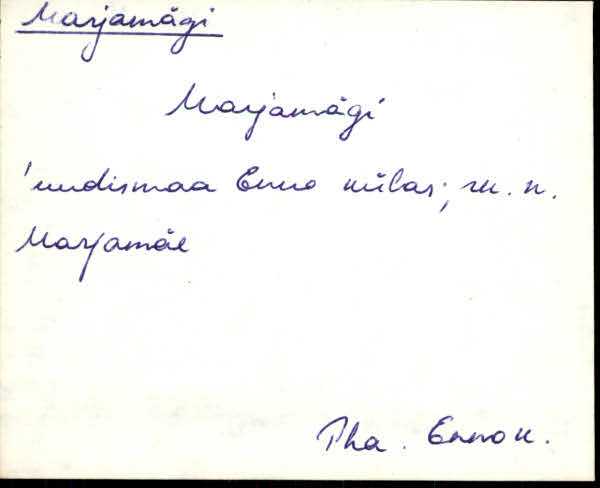 Marjamägi
Marjamägi
'uudismaa Enno külas; rk. n.
Marjamäe
Pha. Enno k.